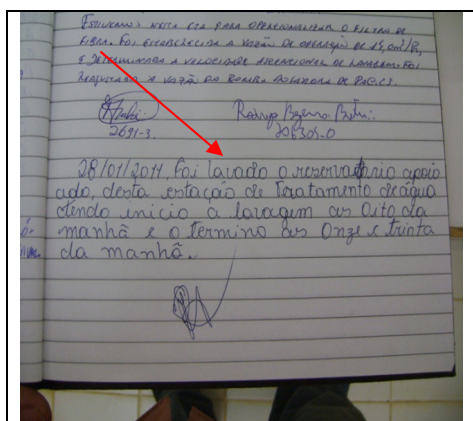 Estivemos nesta ETA para operacionalizar o filtro de
fibra. Foi estabelecida a vazão de operação de 15,0m³/h,
e determinada a velocidade ascencional de lavagem. Foi
a vazão da bomba dosadora de
2691-3.
Rodrigo
28/01/2011, Foi lavado o reservatório apoi
ado, desta estação de Tratamento de água
tendo unicio a lavagem as Oito da
manhã e o termino as Onze e trinta
da manhã.